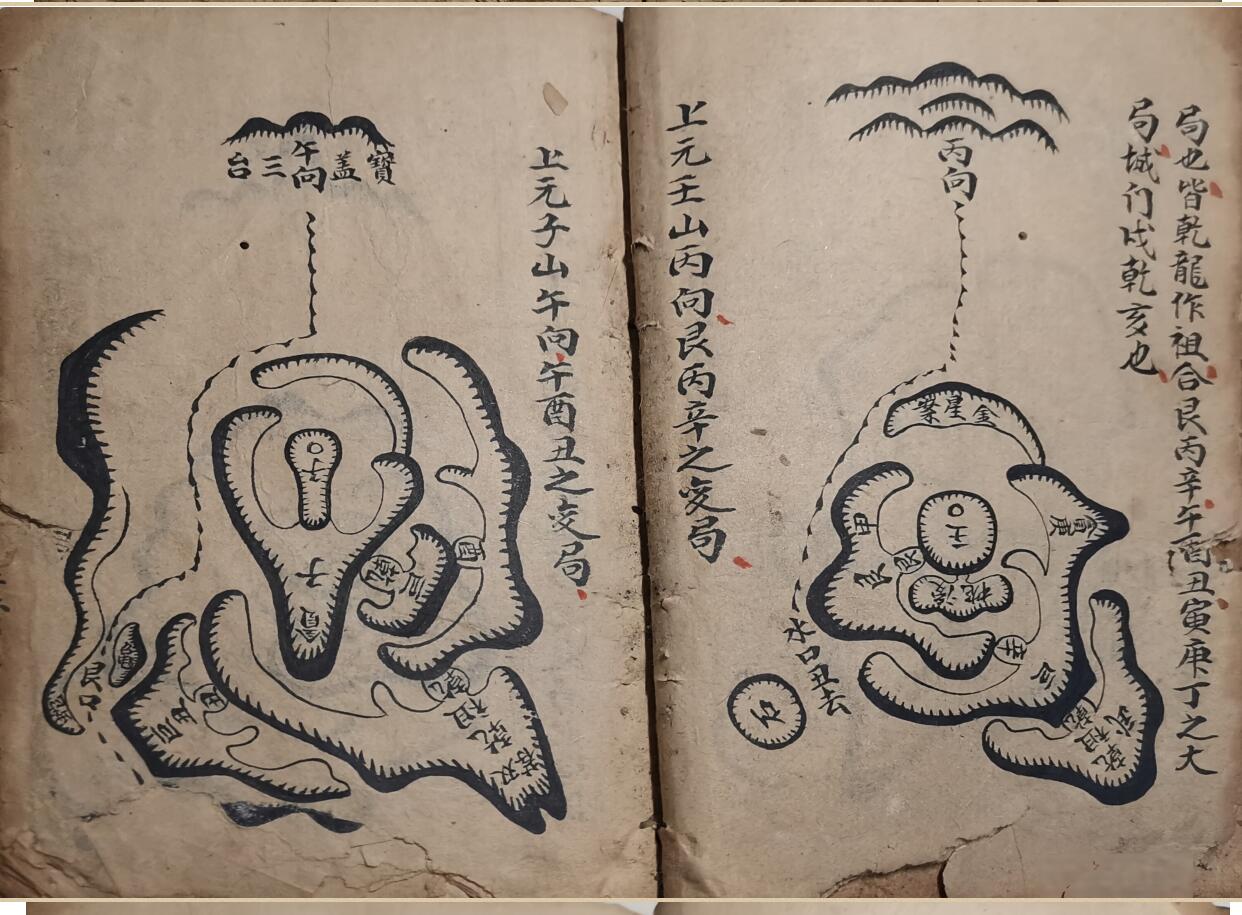 局也皆乾龍作祖合艮丙辛午酉丑寅庚丁之大
局城门戌乾亥也
丙向
金星案
甲
艮
壬
庚
辛
乾
祖
乾
水口丑去
石
上元壬山丙向艮丙辛之变局
上元子山午向午酉丑之变局
寶蓋三台
午向
子
酉
乾
祖
乾
丑
艮口
龜